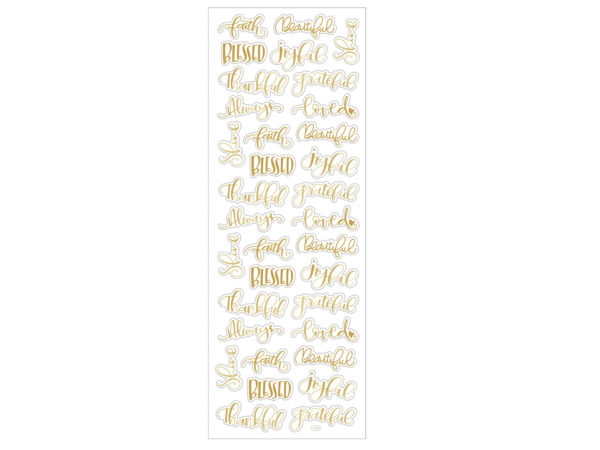 faith Beautiful Shine
BLESSED joyful
Thankful grateful
Always loved
Shine faith Beautiful
BLESSED joyful
Thankful grateful
Always loved
Shine faith Beautiful
BLESSED joyful
Thankful grateful
Always loved
Shine faith Beautiful
BLESSED joyful
Thankful grateful